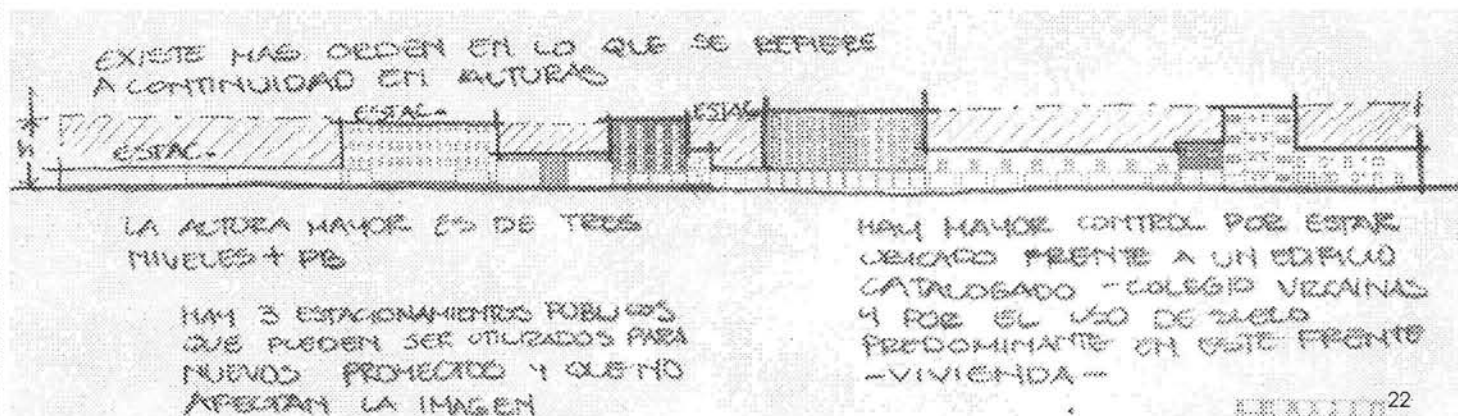 EXISTE MAS ORDEN EN LO QUE SE REFIERE
A CONTINUIDAD EN ALTURAS
ESTAC.
ESTAC.
ESTAC.
h
LA ALTURA MAYOR ES DE TRES
NIVELES + PB
HAY 3 ESTACIONAMIENTOS PUBLICOS
QUE PUEDEN SER UTILIZADOS PARA
NUEVOS PROYECTOS Y QUE NO
AFECTAN LA IMAGEN
HAY MAYOR CONTROL POR ESTAR
UBICADO FRENTE A UN EDIFICIO
CATALOGADO - COLEGIO VIZCAINAS
Y POR EL USO DE SUELO
PREDOMINANTE EN ESTE FRENTE
- VIVIENDA -
22